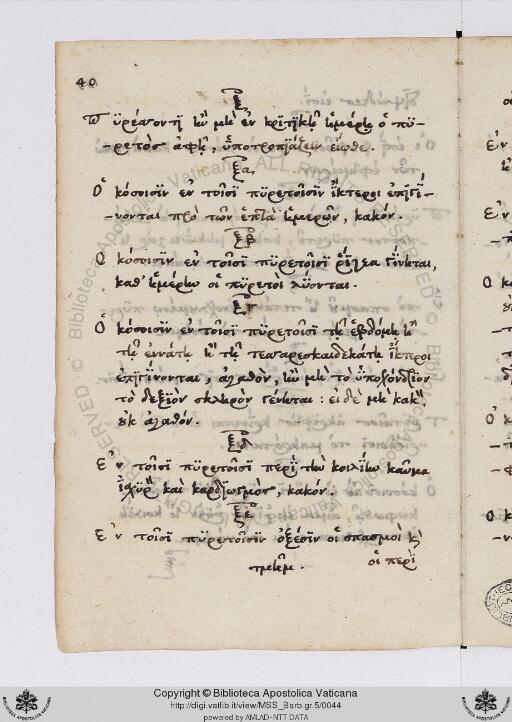 40
ξ
ἢν μὴ ἐν κριτικῇ ἡμέρῃ ὁ πυ-
-ρετὸς ἀφῇ, ὑποτροπϊάζειν εἴωθε.
ξα
Ὁκόσοισϊν ἐν τοῖσι πϋρετοῖσϊν ἴκτεροι ἐπιγί-
-νονται πρὸ τῶν ἑπτὰ ἡμερῶν, κακόν.
ξβ
Ὁκόσοισϊν ἐν τοῖσι πϋρετοῖσι ῥίγεα γίνεται,
καθ' ἡμέρην οἱ πϋρετοὶ λύονται.
ξγ
Ὁκόσοισϊν ἐν τοῖσι πϋρετοῖσι τῇ ἑβδόμῃ ἢ
τῇ ἐννάτῃ ἢ τῇ τεσσαρεσκαιδεκάτῃ ἴκτεροι
ἐπιγίνονται, ἀγαθὸν, ἢν μὴ τὸ ὑποχόνδριον
τὸ δεξϊὸν σκληρὸν γένηται: εἰ δὲ μὴ
ἀγαθόν.
ξδ
Ἐν τοῖσι πϋρετοῖσι περὶ τὴν κοιλίην καῦμα
ἰσχυρὸν καὶ καρδϊωγμὸς, κακόν.
ξε
Ἐν τοῖσι πϋρετοῖσϊν ὀξέσϊν οἱ σπασμοὶ κ̀
οἱ περὶ
Copyright © Biblioteca Apostolica Vaticana
http://digi.vatlib.it/view/MSS_Barb.gr.5/0044
powered by AMLAD-NTT DATA